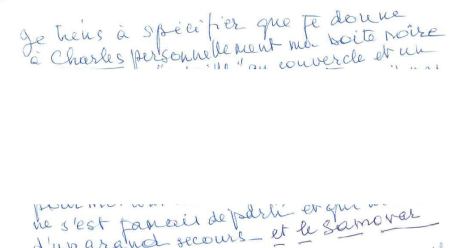 Je tiens à spécifier que je donne
à Charles personnellement ma boite noire
au couvercle et un
ne s'est jamais departi et qui
d'un grand secours - et le Samovar